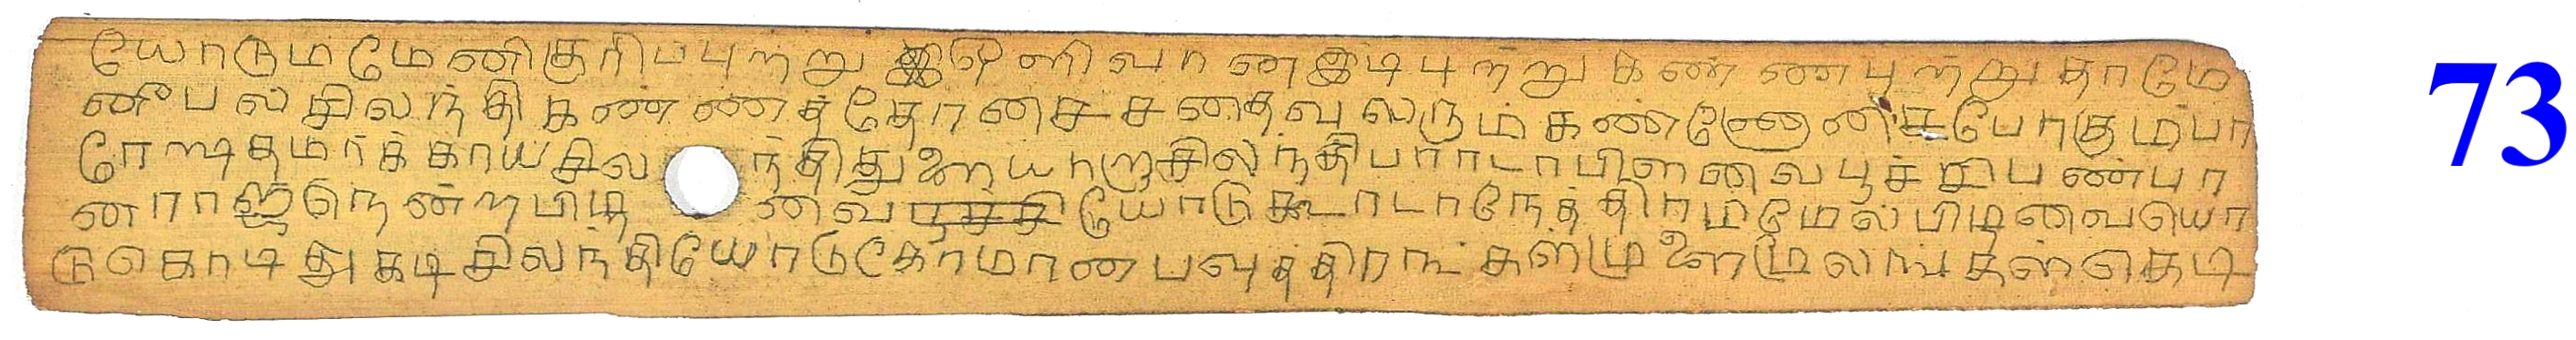 யோடும மேனிகுரிப்புற்று இ ஒளிவான இடிபுற்று கண்ணபுற்று தாமே 73
னீபல் சிலந்தி கண்ணத்தோன்ச சதைவலரும் கண்ணேனிசபோகும்பா
ரோ தமர்க் காய் சிலந்தி துளையாறு சிலந்தி பாராடா பிளவை பூச்சி பண்பா
னராஜ நென்ற பிடிவை யோடு கூடாடா நேத்திரம் மேல் பிடிவையொ
டு கொடி து கடி சிலந்தியோடு கோமாண பவுத்திரங்கள் முளை மூலங்கள் கெடி